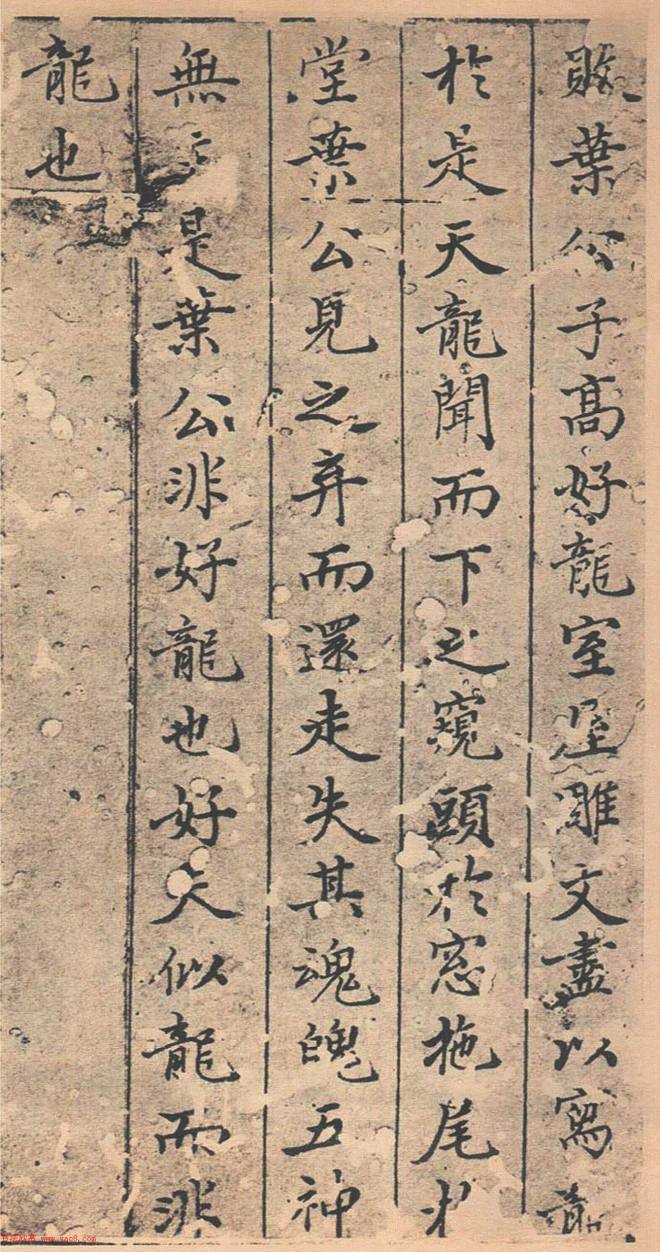 敢葉公子高好龍室屋雕文盡以寫
於是天龍聞而下之窺頭於窓拖尾於
堂葉公見之弃而還走失其魂魄五神
無是葉公非好龍也好夫似龍而非
龍也